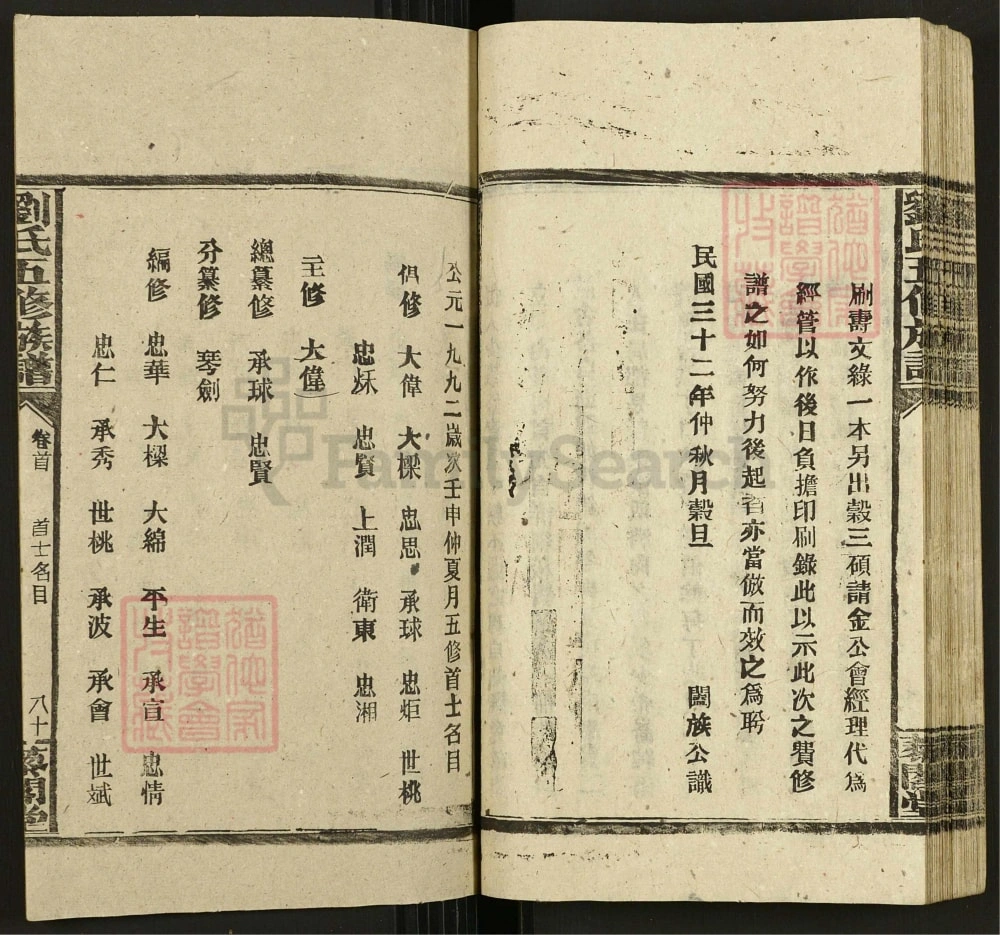 刷壽文綠一本另出穀三碩請金公會經理代爲
經管以作後日負擔印刷錄此以示此次之費修
譜之如何努力後起者亦當倣而效之爲聍
民國三十二年仲秋月穀旦 闔族公識
公元一九九二歲次壬申仲夏月五修首士名目
倡修 大偉 大樑 忠思 承球 忠炬 世桃
忠烁 忠賢 上潤 衛東 忠湘
主修 大偉
總纂修 承球 忠賢
分纂修 琴劍
編修 忠華 大樑 大綿 平生 承宣 忠情
忠仁 承秀 世桃 承波 承會 世斌
劉氏五修族譜 卷首 首士名目 八十
FamilySearch